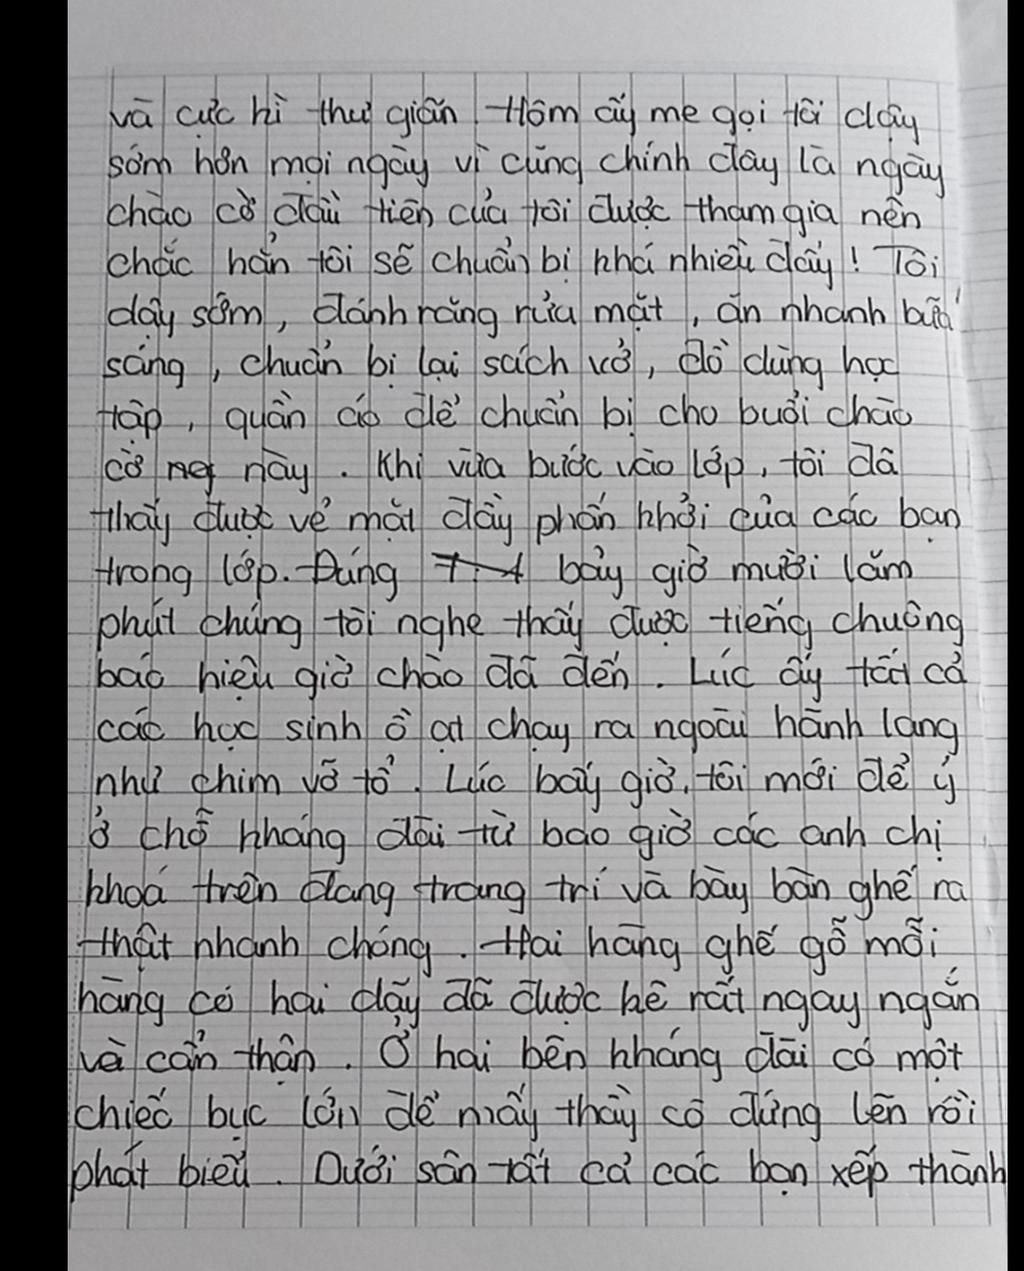 và cực hì thư giãn. Hôm ấy mẹ gọi tôi dậy
sớm hơn mọi ngày vì cũng chính đây là ngày
chào cờ đầu tiên của tôi được tham gia nên
chắc hẳn tôi sẽ chuẩn bị khá nhiều đấy! Tôi
dậy sớm, đánh răng rửa mặt, ăn nhanh bữa
sáng, chuẩn bị lại sách vở, đồ dùng học
tập, quần áo để chuẩn bị cho buổi chào
cờ này. Khi vừa bước vào lớp, tôi đã
thấy được vẻ mặt đầy phấn khởi của các bạn
trong lớp. Đúng bảy giờ mười lăm
phút chúng tôi nghe thấy được tiếng chuông
báo hiệu giờ chào đã đến. Lúc ấy tất cả
các học sinh ồ ạt chạy ra ngoài hành lang
như chim vỡ tổ. Lúc bấy giờ, tôi mới để ý
ở chỗ kháng đài từ bao giờ các anh chị
khoá trên đang trang trí và bày bàn ghế ra
thật nhanh chóng. Hai hàng ghế gỗ mỗi
hàng có hai dãy đã được kê rất ngay ngắn
và cẩn thận. Ở hai bên kháng đài có một
chiếc bục lớn để mấy thầy cô đứng lên rồi
phát biểu. Dưới sân tất cả các bạn xếp thành